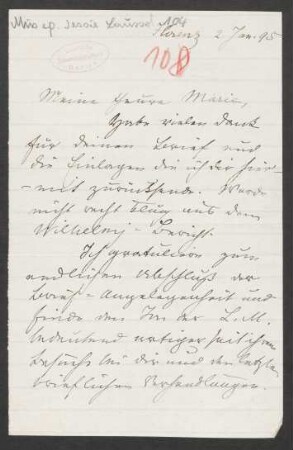 Mus. ep. Jessie Laussot 104
Florenz 2 Jan. 95
108
Meine theure Marie,
Habe vielen Dank
für deinen Brief und
die Einlagen die ich dir hier-
-mit zurücksende. Werde
nicht recht klug aus dem
Wilhelmj-Bericht.
Ich gratuliere zum
endlichen Abschluß der
-Angelegenheit und
finde den der L. M.
bedeutend artiger seit ihrem
Besuche bei dir und den letzten
brieflichen Verhandlungen.